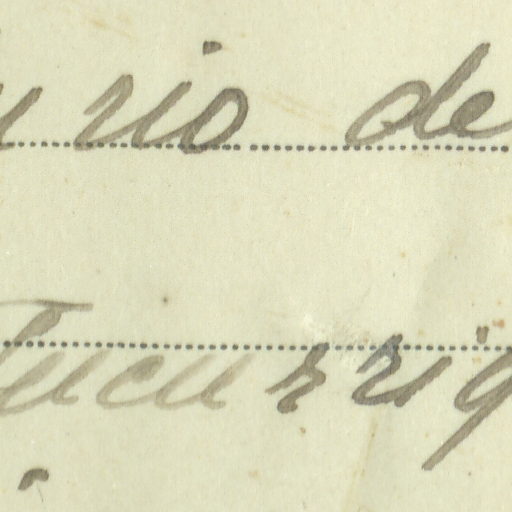 rio de
Tucurrig